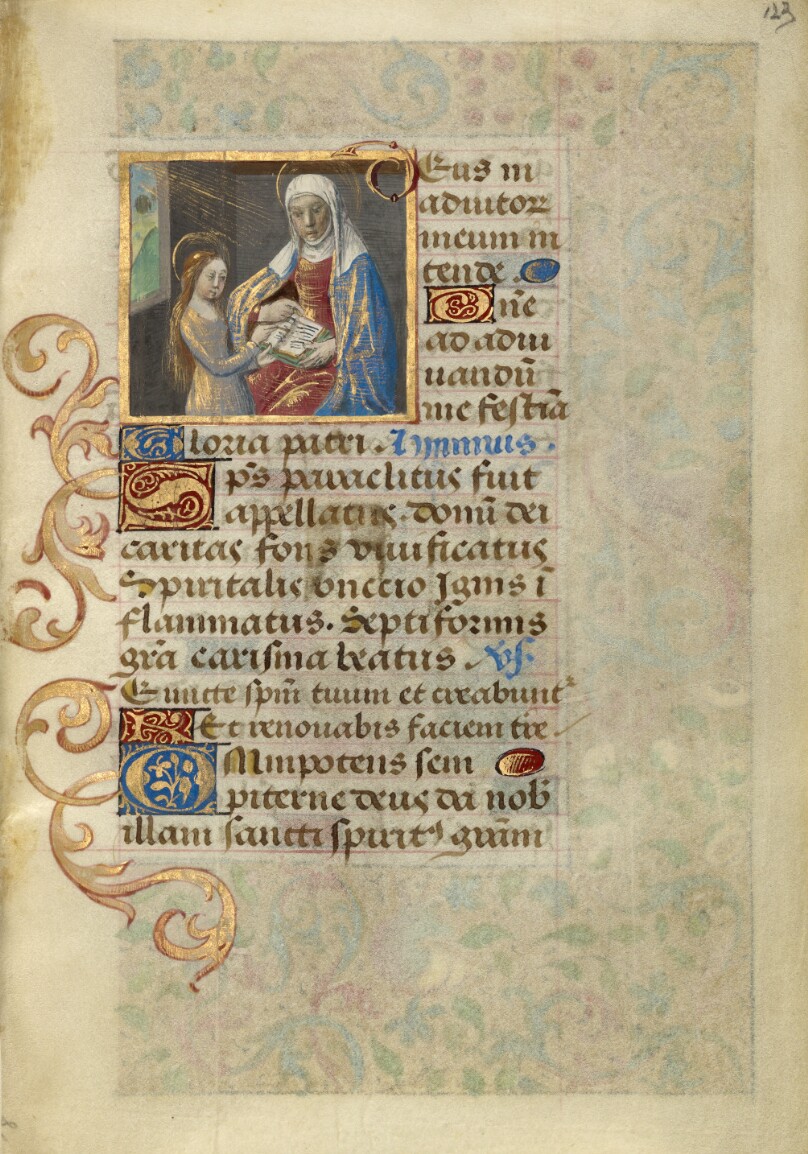 123
Deus in
adiutor
meum in
tende.
Dn̄e
ad adiu
uandū
me festīa
Gloria patri. Ymnus.
Sp̄s paraclitus fuit
appellatus. donū dei
caritas fons viuificatus
Spiritalis vnccio Ignis ī
flammatus. Septiformis
grā carisma beatus. vs.
Emicte spm̄ tuum et creabunt
R Et renouabis faciem tre
OMnipotens sem
piterne deus da nob
illam sancti spirit9 grām